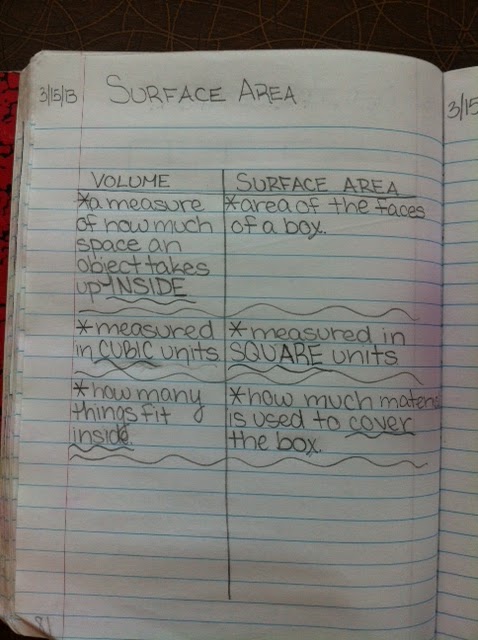 3/15/13 SURFACE AREA
3/15
VOLUME
*a measure
of how much
space an
object takes
up-INSIDE
*measured
in CUBIC units
*how many
things fit
inside.
SURFACE AREA
*area of the faces
of a box.
*measured in
SQUARE units
*how much
is used to cover
the box.
81